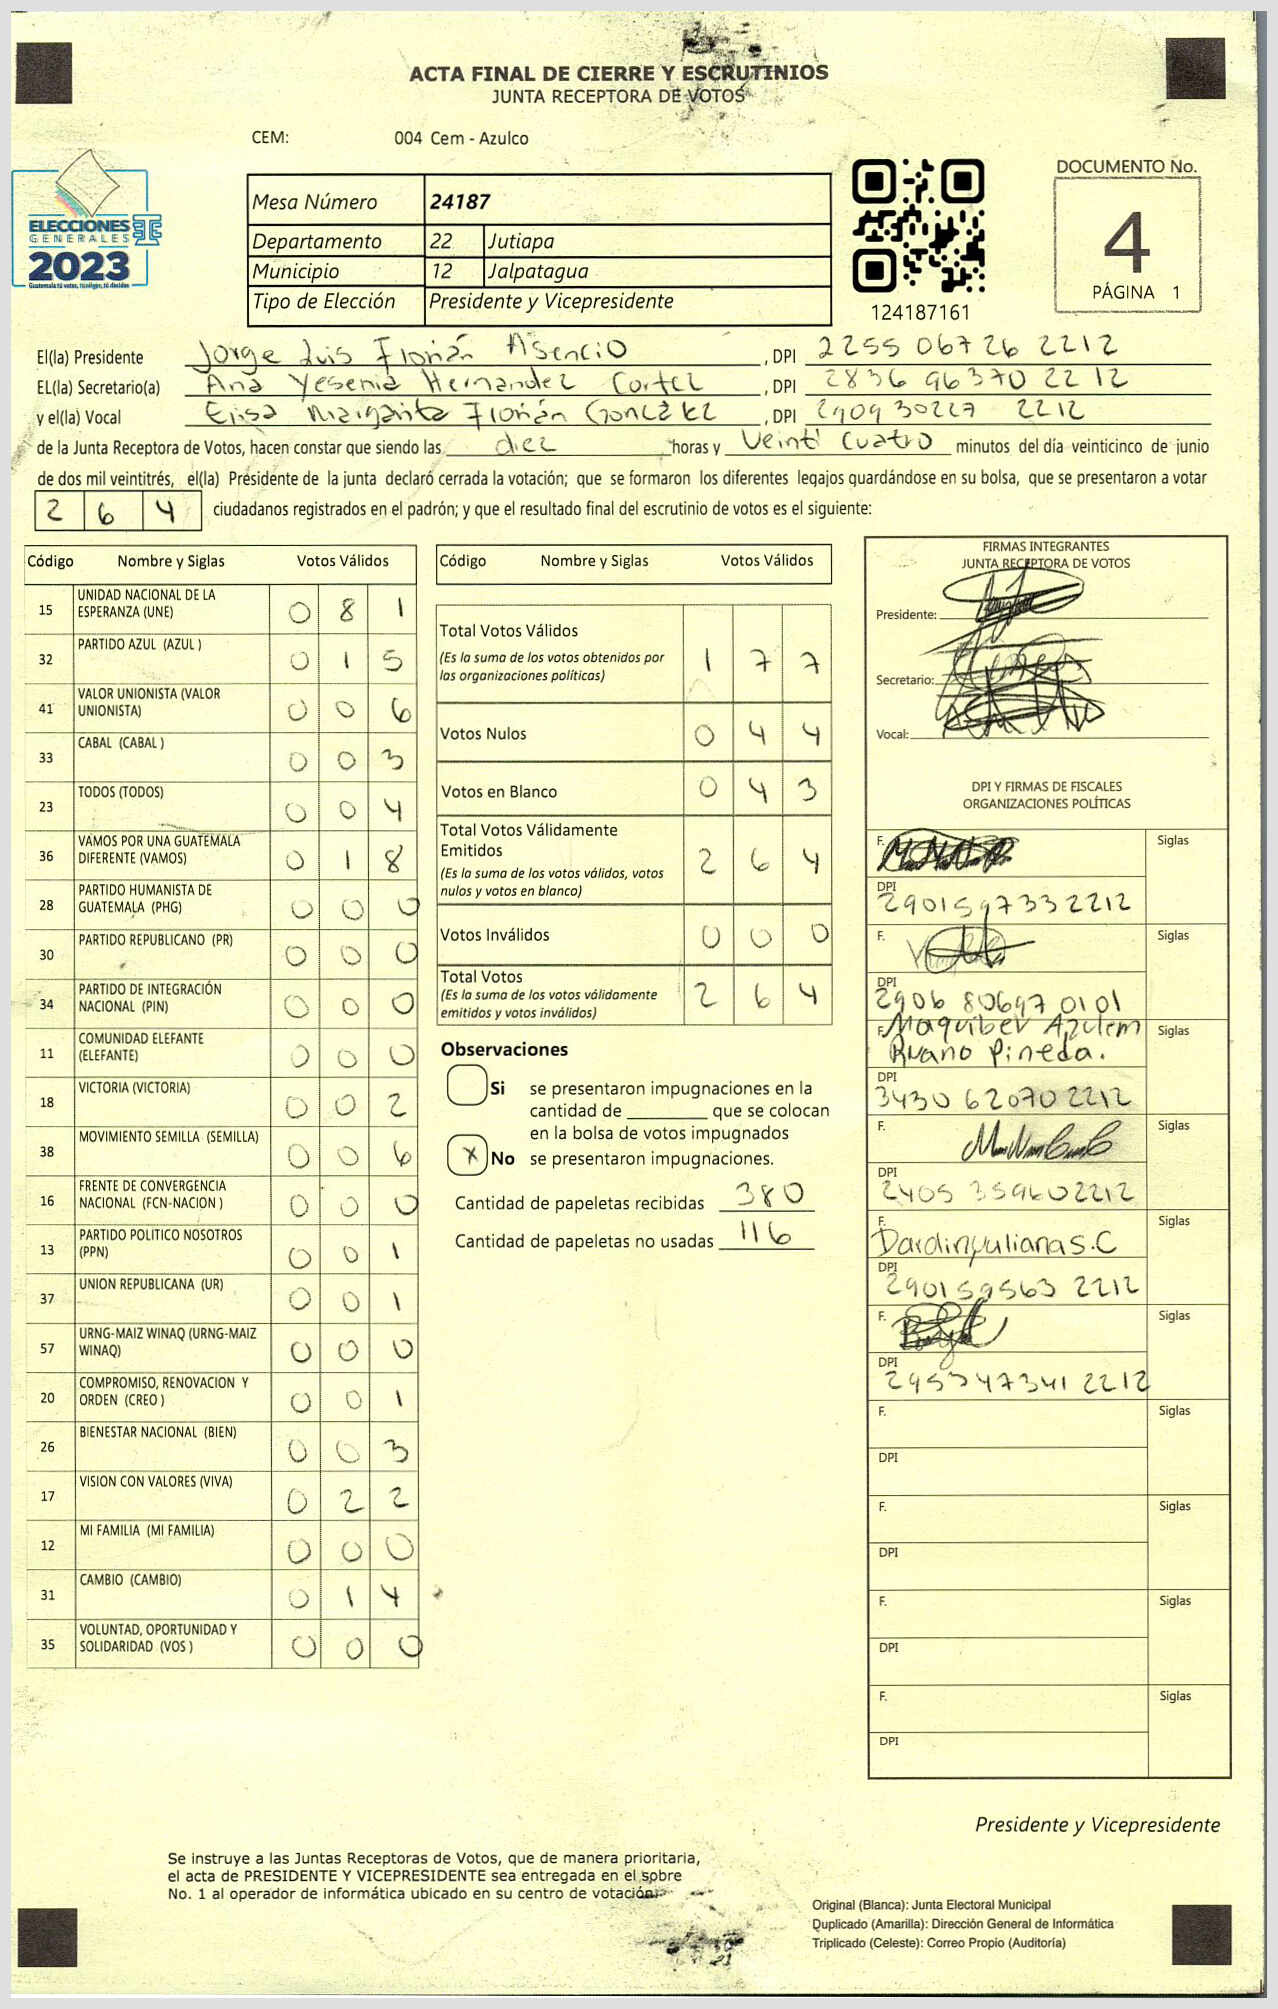 ACTA FINAL DE CIERRE Y ESCRUTINIOS
JUNTA RECEPTORA DE VOTOS
CEM: 004 Cem - Azulco
ELECCIONES
GENERALES
2023
Guatemala tú votas, tú eliges, tú decides
Mesa Número 24187
Departamento 22 Jutiapa
Municipio 12 Jalpatagua
Tipo de Elección Presidente y Vicepresidente
124187161
DOCUMENTO No.
4
PÁGINA 1
El(la) Presidente Jorge Luis Florián Asencio , DPI 2255 06726 2212
EL(la) Secretario(a) Ana Yesenia Hernandez Cortez , DPI 2836 96370 2212
y el(la) Vocal Elisa Margarita Florián González , DPI 2909 30227 2212
de la Junta Receptora de Votos, hacen constar que siendo las diez horas y Veinti cuatro minutos del día veinticinco de junio
de dos mil veintitrés, el(la) Presidente de la junta declaró cerrada la votación; que se formaron los diferentes legajos guardándose en su bolsa, que se presentaron a votar
2 6 4 ciudadanos registrados en el padrón; y que el resultado final del escrutinio de votos es el siguiente:
Código Nombre y Siglas Votos Válidos
15 UNIDAD NACIONAL DE LA ESPERANZA (UNE) 0 8 1
32 PARTIDO AZUL (AZUL ) 0 1 5
41 VALOR UNIONISTA (VALOR UNIONISTA) 0 0 6
33 CABAL (CABAL ) 0 0 3
23 TODOS (TODOS) 0 0 4
36 VAMOS POR UNA GUATEMALA DIFERENTE (VAMOS) 0 1 8
28 PARTIDO HUMANISTA DE GUATEMALA (PHG) 0 0 0
30 PARTIDO REPUBLICANO (PR) 0 0 0
34 PARTIDO DE INTEGRACIÓN NACIONAL (PIN) 0 0 0
11 COMUNIDAD ELEFANTE (ELEFANTE) 0 0 0
18 VICTORIA (VICTORIA) 0 0 2
38 MOVIMIENTO SEMILLA (SEMILLA) 0 0 6
16 FRENTE DE CONVERGENCIA NACIONAL (FCN-NACION ) 0 0 0
13 PARTIDO POLITICO NOSOTROS (PPN) 0 0 1
37 UNION REPUBLICANA (UR) 0 0 1
57 URNG-MAIZ WINAQ (URNG-MAIZ WINAQ) 0 0 0
20 COMPROMISO, RENOVACION Y ORDEN (CREO ) 0 0 1
26 BIENESTAR NACIONAL (BIEN) 0 0 3
17 VISION CON VALORES (VIVA) 0 2 2
12 MI FAMILIA (MI FAMILIA) 0 0 0
31 CAMBIO (CAMBIO) 0 1 4
35 VOLUNTAD, OPORTUNIDAD Y SOLIDARIDAD (VOS ) 0 0 0
Código Nombre y Siglas Votos Válidos
Total Votos Válidos 1 7 7
(Es la suma de los votos obtenidos por
las organizaciones políticas)
Votos Nulos 0 4 4
Votos en Blanco 0 4 3
Total Votos Válidamente
Emitidos 2 6 4
(Es la suma de los votos válidos, votos
nulos y votos en blanco)
Votos Inválidos 0 0 0
Total Votos 2 6 4
(Es la suma de los votos válidamente
emitidos y votos inválidos)
Observaciones
Si se presentaron impugnaciones en la
cantidad de ________ que se colocan
en la bolsa de votos impugnados
X No se presentaron impugnaciones.
Cantidad de papeletas recibidas 380
Cantidad de papeletas no usadas 116
FIRMAS INTEGRANTES
JUNTA RECEPTORA DE VOTOS
Presidente:
Secretario:
Vocal:
DPI Y FIRMAS DE FISCALES
ORGANIZACIONES POLÍTICAS
F. Siglas
DPI 2901597332212
F. Siglas
DPI 2906 80697 0101
F. Maquiber Azulem Siglas
Ruano Pineda.
DPI 3430 62070 2212
F. Siglas
DPI 2405 35960 2212
F. Dardinyuliana S.C Siglas
DPI 290159563 2212
F. Siglas
DPI 2953 47341 2212
F. Siglas
DPI
F. Siglas
DPI
F. Siglas
DPI
F. Siglas
DPI
Presidente y Vicepresidente
Se instruye a las Juntas Receptoras de Votos, que de manera prioritaria,
el acta de PRESIDENTE Y VICEPRESIDENTE sea entregada en el sobre
No. 1 al operador de informática ubicado en su centro de votación.
Original (Blanca): Junta Electoral Municipal
Duplicado (Amarilla): Dirección General de Informática
Triplicado (Celeste): Correo Propio (Auditoría)